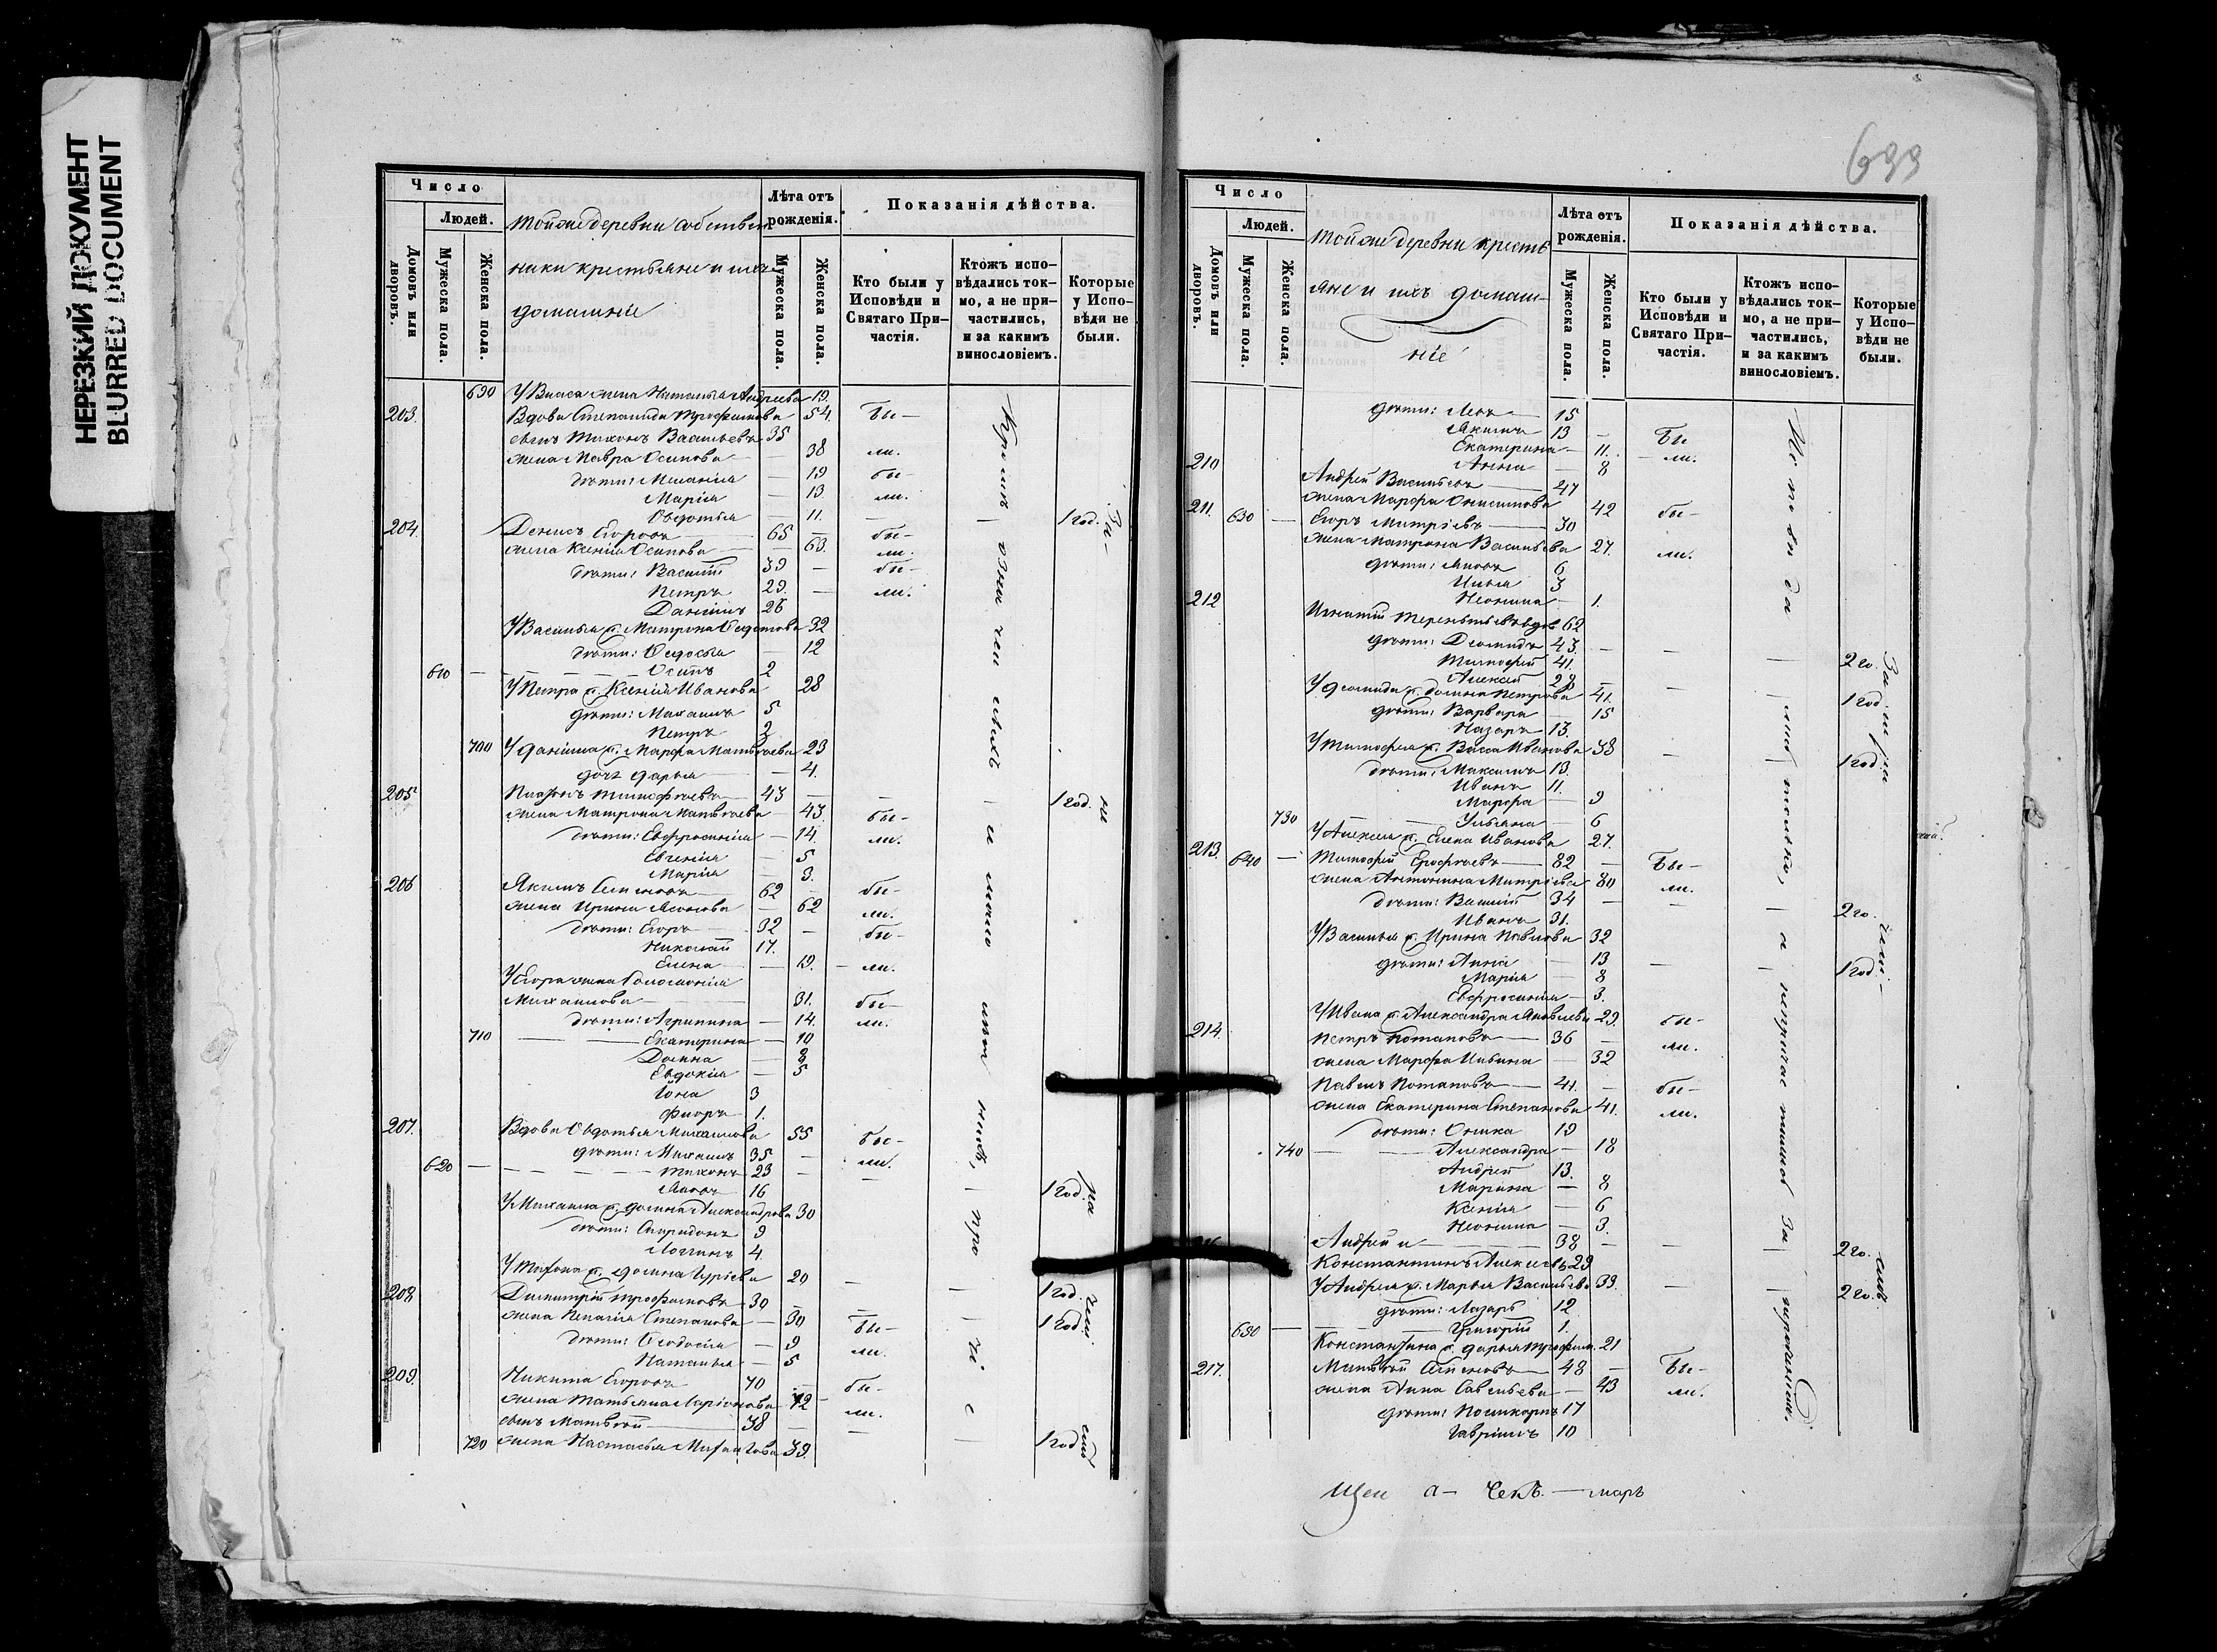 НЕРЕЗКИЙ ДОКУМЕНТ
BLURRED DOCUMENT
Число
Людей.
Домовъ или дворовъ.
Мужеска пола.
Женска пола.
тойже деревни собствен
ники крестьяне и ихъ
домашніе
Лѣта отъ рожденія.
Мужеска пола.
Женска пола.
Показанія дѣйства.
Кто были у Исповѣди и Святаго Причастія.
Ктожъ исповѣдались токмо, а не причастились, и за какимъ винословіемъ.
Которые у Исповѣди не были.
690 У Власа жена Наталья Андреева 19.
203. Вдова Степанида Трофимова 54. Бы-
сынъ Тихонъ Васильевъ 35
жена Мавра Осипова 38 ли.
дѣти: Меланія 19 бы-
Марія 13 ли.
Овдотья 11. 1 год.
204. Денисъ Егоровъ 65 бы-
жена Ксенія Осипова 63. ли.
дѣти: Василій 39 бы-
Петръ 29. ли.
Даніилъ 26
У Василья ж. Матрона Федотова 32
дѣти: Федосья 12
610 Осипъ 2
У Петра ж. Ксенія Иванова 28
дѣти: Михаилъ 5
Петръ 2
700 У Даніила ж. Марфа Матвѣева 23
дочь Дарья 4.
205 Платонъ Тимофѣевъ 43 1 год.
жена Матрона Матвѣева 43. бы-
дѣти: Евфросинія 14. ли.
Евгенія 5
Марія 3.
206 Якимъ Семеновъ 62 бы-
жена Ирина Леонова 62 ли.
дѣти: Егоръ 32 бы-
Николай 17.
Елена 19. ли.
У Егора жена Соломонія
Михаилова 31. бы-
дѣти: Агрипина 14. ли.
710 Екатерина 10
Домна 8
Евдокія 5
Іона 3
Флоръ 1.
207. Вдова Овдотья Михаилова 55 бы-
дѣти: Михаилъ 35 ли.
620 Тихонъ 23
Яковъ 16 1 год.
У Михаила ж. Домна Александрова 30
дѣти: Спиридонъ 9
Логгинъ 4.
У Тихона ж. Домна Гурьева 20 1 год.
208. Димитрій Трофимовъ 30
жена Пелагія Степанова 30 Бы- 1 год.
дѣти: Феодосія 9 ли.
Наталья 5
209. Никита Егоровъ 70 бы-
жена Татьяна Ларіонова 72 ли.
сынъ Матвѣй 38
720 жена Настасья Михаилова 39. 1 год
699
Число
Людей.
Домовъ или дворовъ.
Мужеска пола.
Женска пола.
тойже деревни кресть
яне и ихъ домаш-
ніе
Лѣта отъ рожденія.
Мужеска пола.
Женска пола.
Показанія дѣйства.
Кто были у Исповѣди и Святаго Причастія.
Ктожъ исповѣдались токмо, а не причастились, и за какимъ винословіемъ.
Которые у Исповѣди не были.
дѣти: 15
Якимъ 13 Бы
Екатерина 11. ли.
Анна 8
210 Андрей Васильевъ 47
жена Марфа Онисимова 42 бы-
211. 630 Егоръ Митріевъ 30
жена Матрона Васильева 27. ли.
дѣти: Яковъ 6
Илья 3
Неонила 1.
212 Игнатій Терентьевъ вдов 62
дѣти: Деомидъ 43.
Тимофей 41. 2 го.
Алексей 28
У Деомида ж. Домна Петрова 41. 1 год
дѣти: Варвара 15
Назаръ 13.
У Тимофея ж. Васса Иванова 38 1 год.
дѣти: Максимъ 13.
Иванъ 11.
Марфа 9
730 Ульяна 6
У Алексея ж. Елена Иванова 27.
213. 640 Тимофей Ерофѣевъ 82 Бы-
жена Антонина Митріева 80 ли.
дѣти: Василій 34 2 го.
Иванъ 31.
У Василья ж. Ирина Павлова 32
дѣти: Анна 13 1 год.
Марія 8
Евфросинія 3.
У Ивана ж. Александра Яковлева 29. бы-
214. Петръ Потаповъ 36 ли.
жена Марфа Ильина 32
Павелъ Потаповъ 41. бы-
жена Екатерина Степанова 41. ли.
дѣти: Фомка 19
740 Александра 18
Андрей 13.
Марина 8
Ксенія 6
Неонила 3.
Андрей и 38 2 го.
Константинъ Алексеевъ 29
У Андрея ж. Марья Васильева 39. 2 го.
дѣти: Лазарь 12
650 Григорій 1.
Константина ж. Дарья Трофим. 21
217. Матвѣй Семеновъ 48 Бы-
жена Анна Савельева 43 ли.
дѣти: Поликарпъ 17
Гавріилъ 10